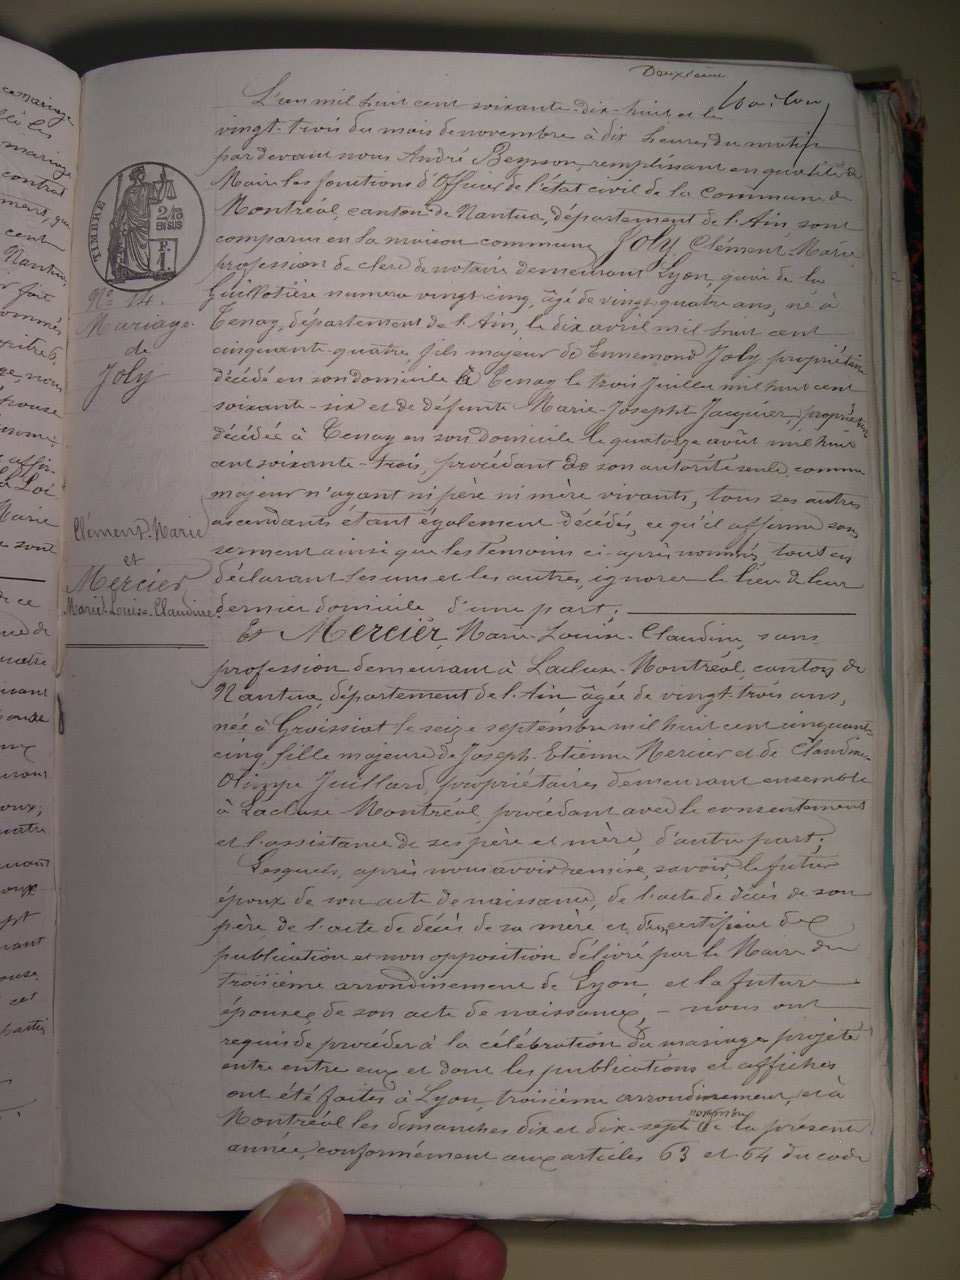 Deuxième
L'an mil huit cent soixante-dix-huit et le
vingt-trois du mois de novembre à dix heures du matin
pardevant nous André Beysson, remplissant en qualité de
Maire les fonctions d'Officier de l'état civil de la Commune de
Montréal, canton de Nantua, département de l'Ain, sont
comparus en la maison commune, Joly Clément-Marie
profession de clerc de notaire demeurant Lyon, quai de la
Guillotière numéro vingt-cinq, âgé de vingt-quatre ans, né à
Tenay, département de l'Ain, le dix avril mil huit cent
cinquante-quatre, fils majeur de Ennemond Joly, propriétaire
décédé en son domicile à Tenay le trois Juillet mil huit cent
soixante-six et de défunte Marie-Josephte Jacquier, propriétaire
décédée à Tenay en son domicile le quatorze août mil huit
cent soixante-trois, procédant de son autorité seule comme
majeur n'ayant ni père ni mère vivants, tous ses autres
ascendants étant également décédés, ce qu'il affirme sous
serment ainsi que les témoins ci-après nommés, tout en
déclarant les uns et les autres, ignorer le lieu de leur
dernier domicile d'une part.
Et Mercier, Marie-Louise-Claudine, sans
profession demeurant à Lacluse-Montréal, canton de
Nantua, département de l'Ain âgée de vingt-trois ans,
née à Groissiat le seize septembre mil huit cent cinquante-
cinq, fille majeure de Joseph-Etienne Mercier et de Claudine-
Olimpe Juillard, propriétaires demeurant ensemble
à Lacluse Montréal, procédant avec le consentement
et l'assistance de ses père et mère, d'autre part;
Lesquels, après nous avoir remis, savoir le futur
époux de son acte de naissance, de l'acte de décès de son
père de l'acte de décès de sa mère et du certificat de
publication et non opposition délivré par le Maire du
troisième arrondissement de Lyon, et la future
épouse, de son acte de naissance, - nous ont
requis de procéder à la célébration du mariage projeté
entre entre eux et dont les publications et affiches
ont été faites à Lyon, troisième arrondissement, et à
novembre
Montréal les dimanches dix et dix-sept de la présente
année, conformément aux articles 63 et 64 du code
TIMBRE
2/10
EN SUS
F.
1.
N° 14.
Mariage
de
Joly
Clément-Marie
et
Mercier
Marie-Louise-Claudine.